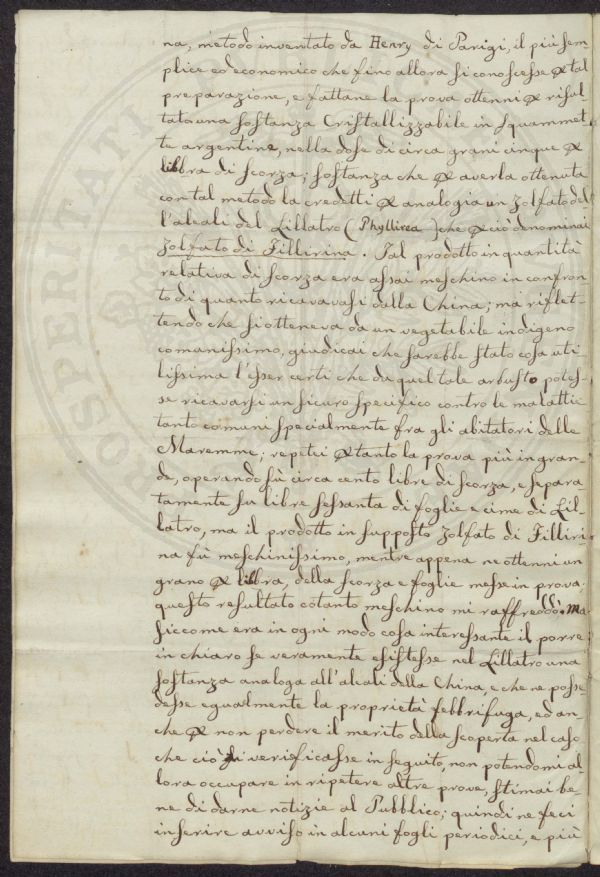 na, metodo inventato da Henry di Parigi, il più sem
plice ed economico che fino allora si conoscesse p tal
preparazione, e fattane la prova ottenni p risul-
tato una sostanza Cristallizzabile in squammet-
te argentine, nella dose di circa grani cinque p
libbra di scorza; sostanza che p averla ottenuta
con tal metodo la credetti p analogia un zolfato del
l'alcali del Lillatro (Phyllirea) che p ciò denominai
Zolfato di Fillirina. Tal prodotto in quantità
relativa di scorza era assai meschino in confron-
to di quanto ricavavasi dalla China; ma riflet-
tendo che si otteneva da un vegetabile indigeno
comunissimo, giudicai che sarebbe stato cosa uti-
lissima l'esser certi che da quel tale arbusto potes-
se ricavarsi un sicuro specifico contro le malattie
tanto comuni specialmente fra gli abitatori delle
Maremme; repetei p tanto la prova più in gran-
de, operando sù circa cento libre di scorza, e separa
tamente su libre sessanta di foglie e cime di Lil-
latro, ma il prodotto in supposto Zolfato di Filliri-
na fù meschinissimo, mentre appena ne ottenni un
grano p libbra, della scorza e foglie messe in prova;
questo resultato cotanto meschino mi raffreddò. Ma
siccome era in ogni modo cosa interessante il porre
in chiaro se veramente esistesse nel Lillatro una
sostanza analoga all'alcali della China, e che ne posse
desse egualmente la proprietà febbrifuga, ed an-
che p non perdere il merito della scoperta nel caso
che ciò si verificasse in seguito, non potendomi al-
lora occupare in ripetere altre prove, stimai be-
ne di darne notizie al Pubblico; quindi ne feci
inserire avviso in alcuni fogli periodici, e più
PROSPERITATI